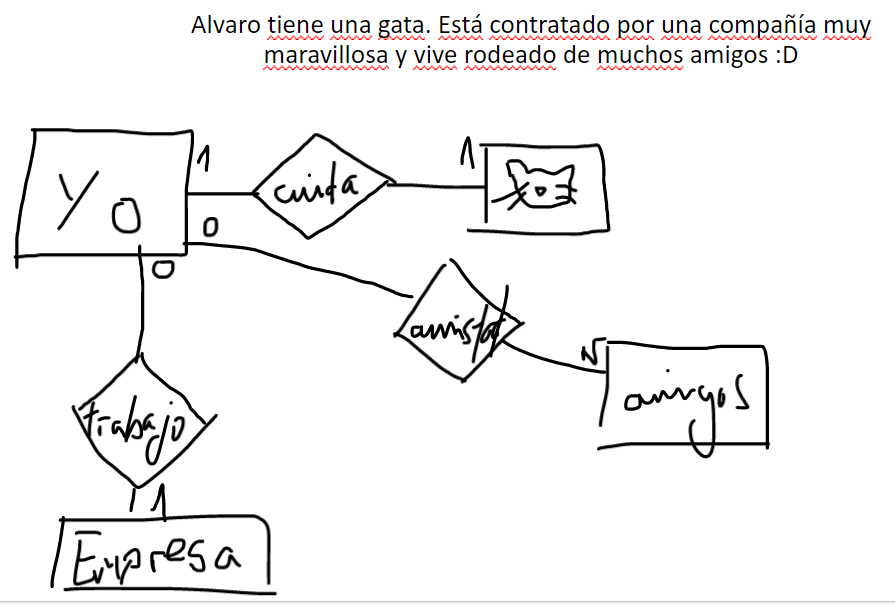 Alvaro tiene una gata. Está contratado por una compañía muy
maravillosa y vive rodeado de muchos amigos :D
Yo
1
cuida
1
0
0
amistad
N
amigos
trabajo
1
Empresa